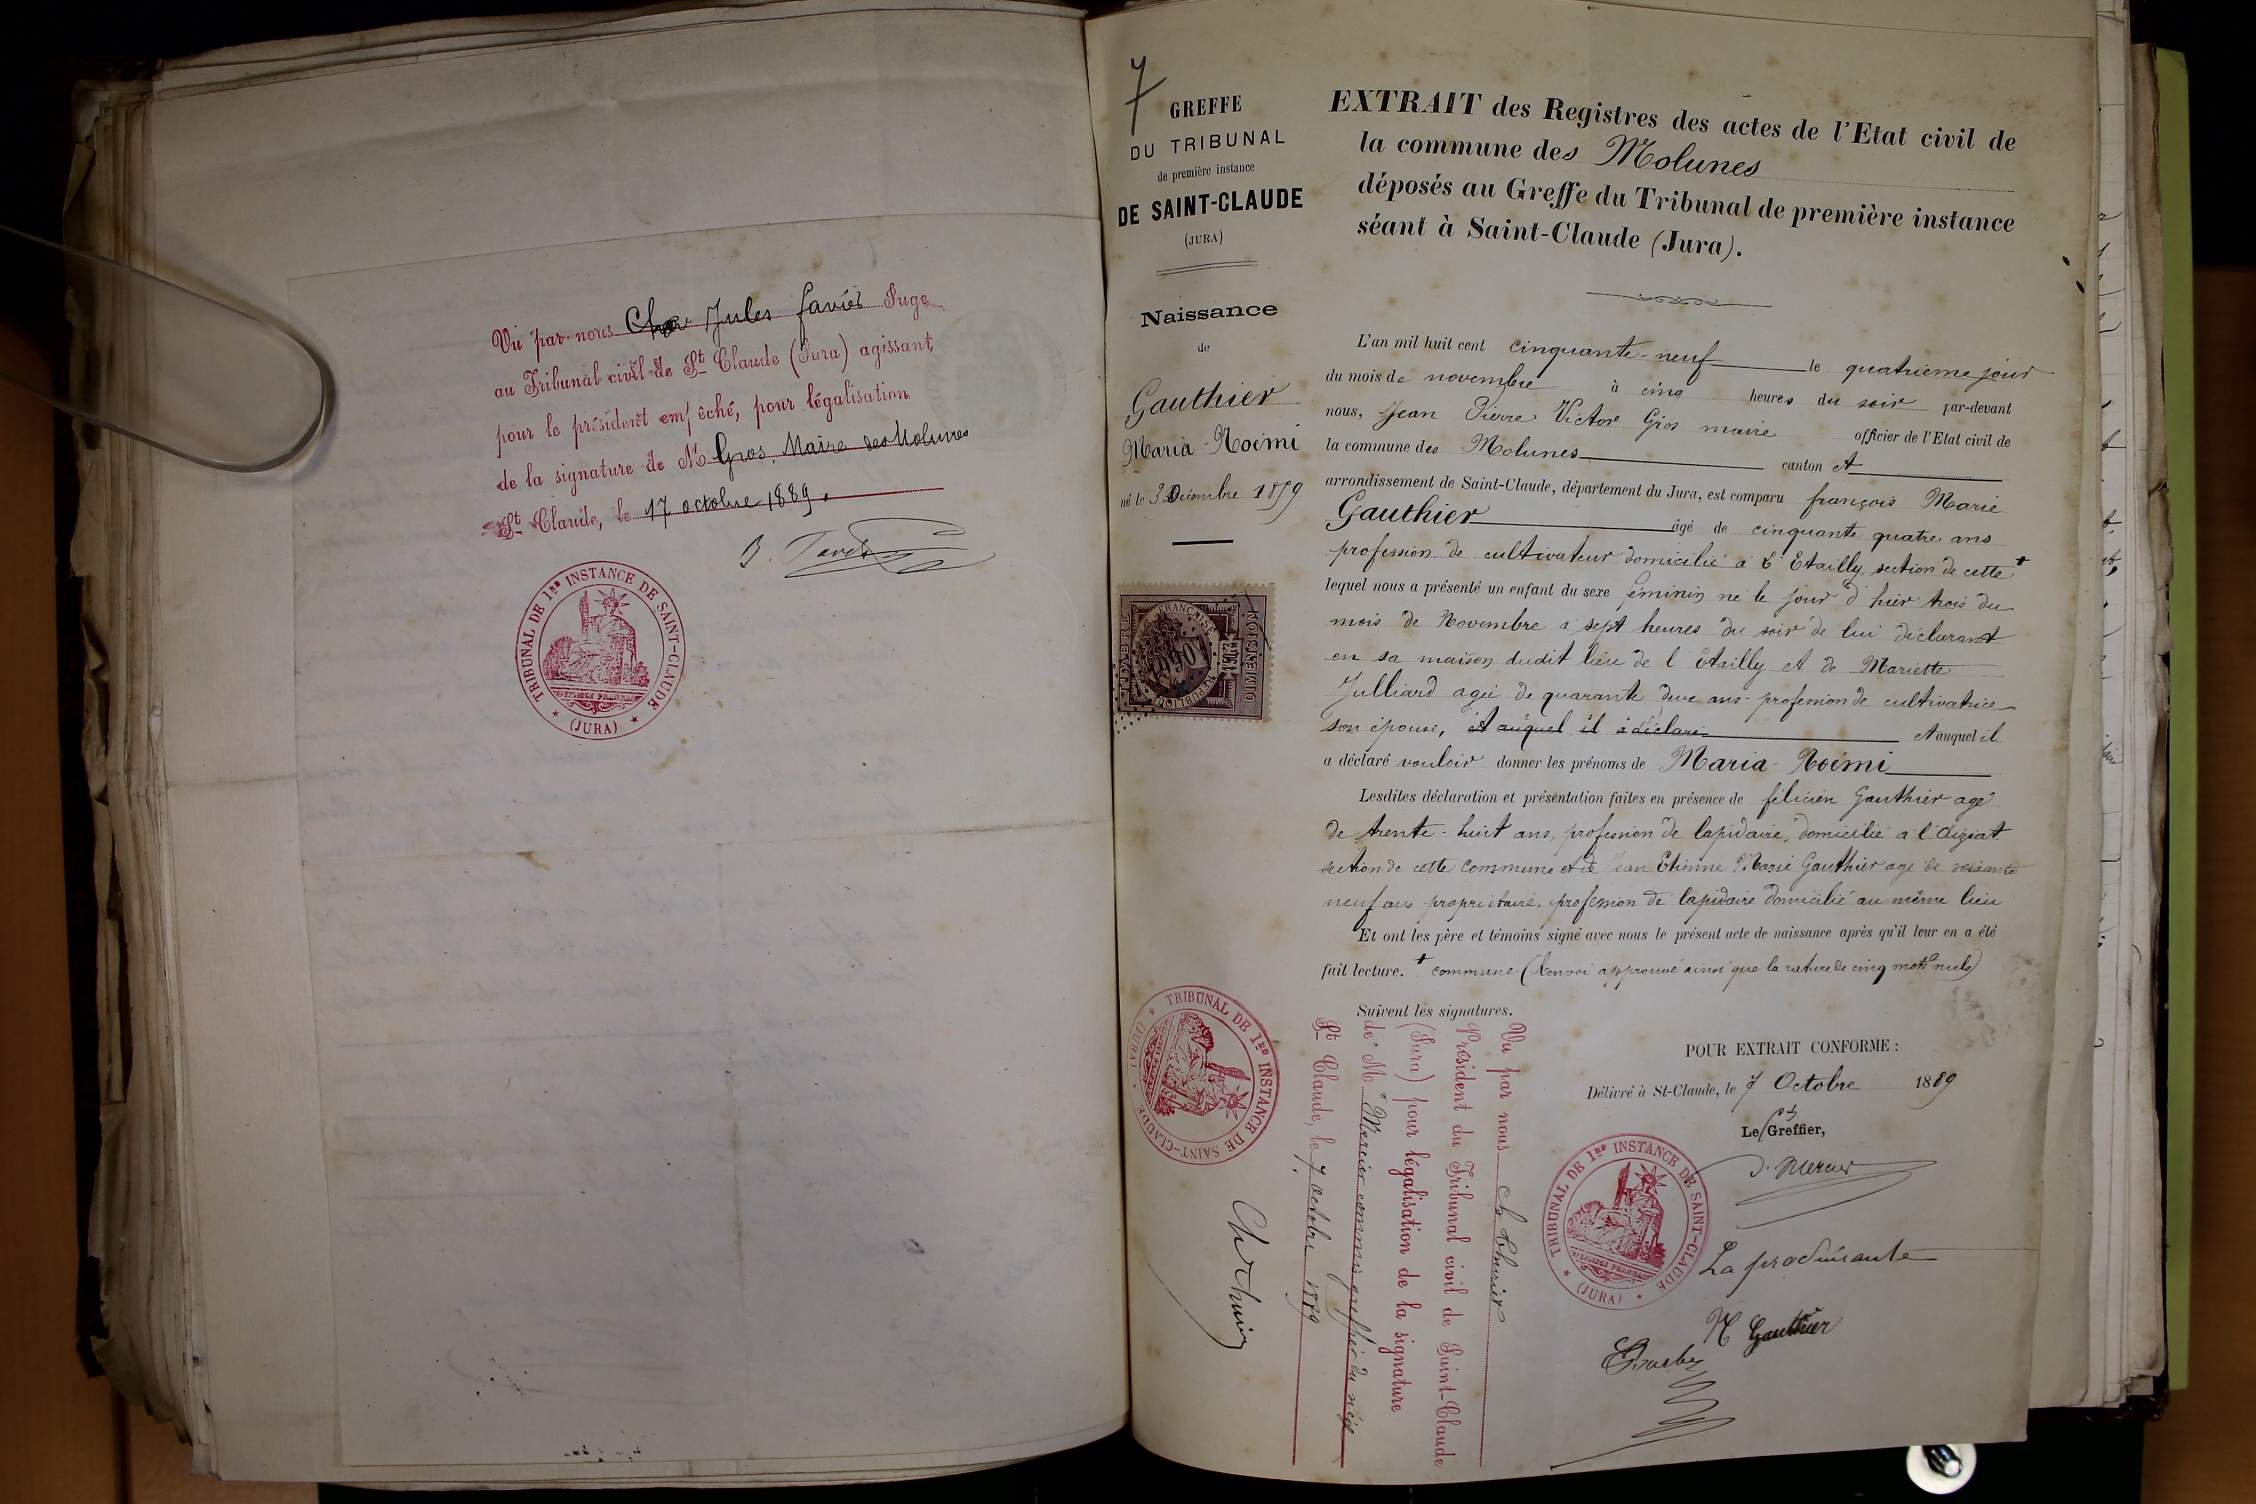 Vu par nous Jules Favier Juge
au Tribunal civil de St Claude (Jura) agissant
pour le président empêché, pour légalisation
de la signature de M. Gros, Maire des Molunes
St Claude, le 17 octobre 1889.
TRIBUNAL DE 1RE INSTANCE DE SAINT-CLAUDE
(JURA)
7
GREFFE
DU TRIBUNAL
de première instance
DE SAINT-CLAUDE
(JURA)
Naissance
de
Gauthier
Maria-Noémi
né le 3 Décembre 1859
RÉPUBLIQUE FRANÇAISE
TRIBUNAL DE 1RE INSTANCE DE SAINT-CLAUDE
(JURA)
EXTRAIT des Registres des actes de l'Etat civil de
la commune des Molunes
déposés au Greffe du Tribunal de première instance
séant à Saint-Claude (Jura).
L'an mil huit cent cinquante-neuf le quatrième jour
du mois de novembre à cinq heures du soir par-devant
nous, Jean Pierre Victor Gros maire officier de l'Etat civil de
la commune des Molunes canton et
arrondissement de Saint-Claude, département du Jura, est comparu françois Marie
Gauthier âgé de cinquante quatre ans
profession de cultivateur domicilié à l'Etailly, section de cette +
lequel nous a présenté un enfant du sexe féminin né le jour d'hier trois du
mois de Novembre à sept heures du soir de lui déclarant
en sa maison dudit lieu de l'Etailly et de Mariette
Julliard agée de quarante deux ans profession de cultivatrice
son épouse, et auquel il a déclaré et auquel il
a déclaré vouloir donner les prénoms de Maria-Noémi
Lesdites déclaration et présentation faites en présence de félicien Gauthier agé
de trente-huit ans, profession de lapidaire, domicilié a l'
section de cette commune et de Jean Etienne Marie Gauthier agé de soixante
neuf ans propriétaire, profession de lapidaire domicilié au même lieu
Et ont les père et témoins signé avec nous le présent acte de naissance après qu'il leur en a été
fait lecture. + commune (Renvoi approuvé ainsi que la rature de cinq mots nuls)
Suivent les signatures.
POUR EXTRAIT CONFORME :
Délivré à St-Claude, le 7 Octobre 1889
Le Greffier,
J. Mercier
TRIBUNAL DE 1RE INSTANCE DE SAINT-CLAUDE
(JURA)
La produisante
N Gauthier
Vu par nous
Président du Tribunal civil de Saint-Claude
(Jura) pour légalisation de la signature
de M. Mercier commis greffier du siège
St Claude, le 7 octobre 1889